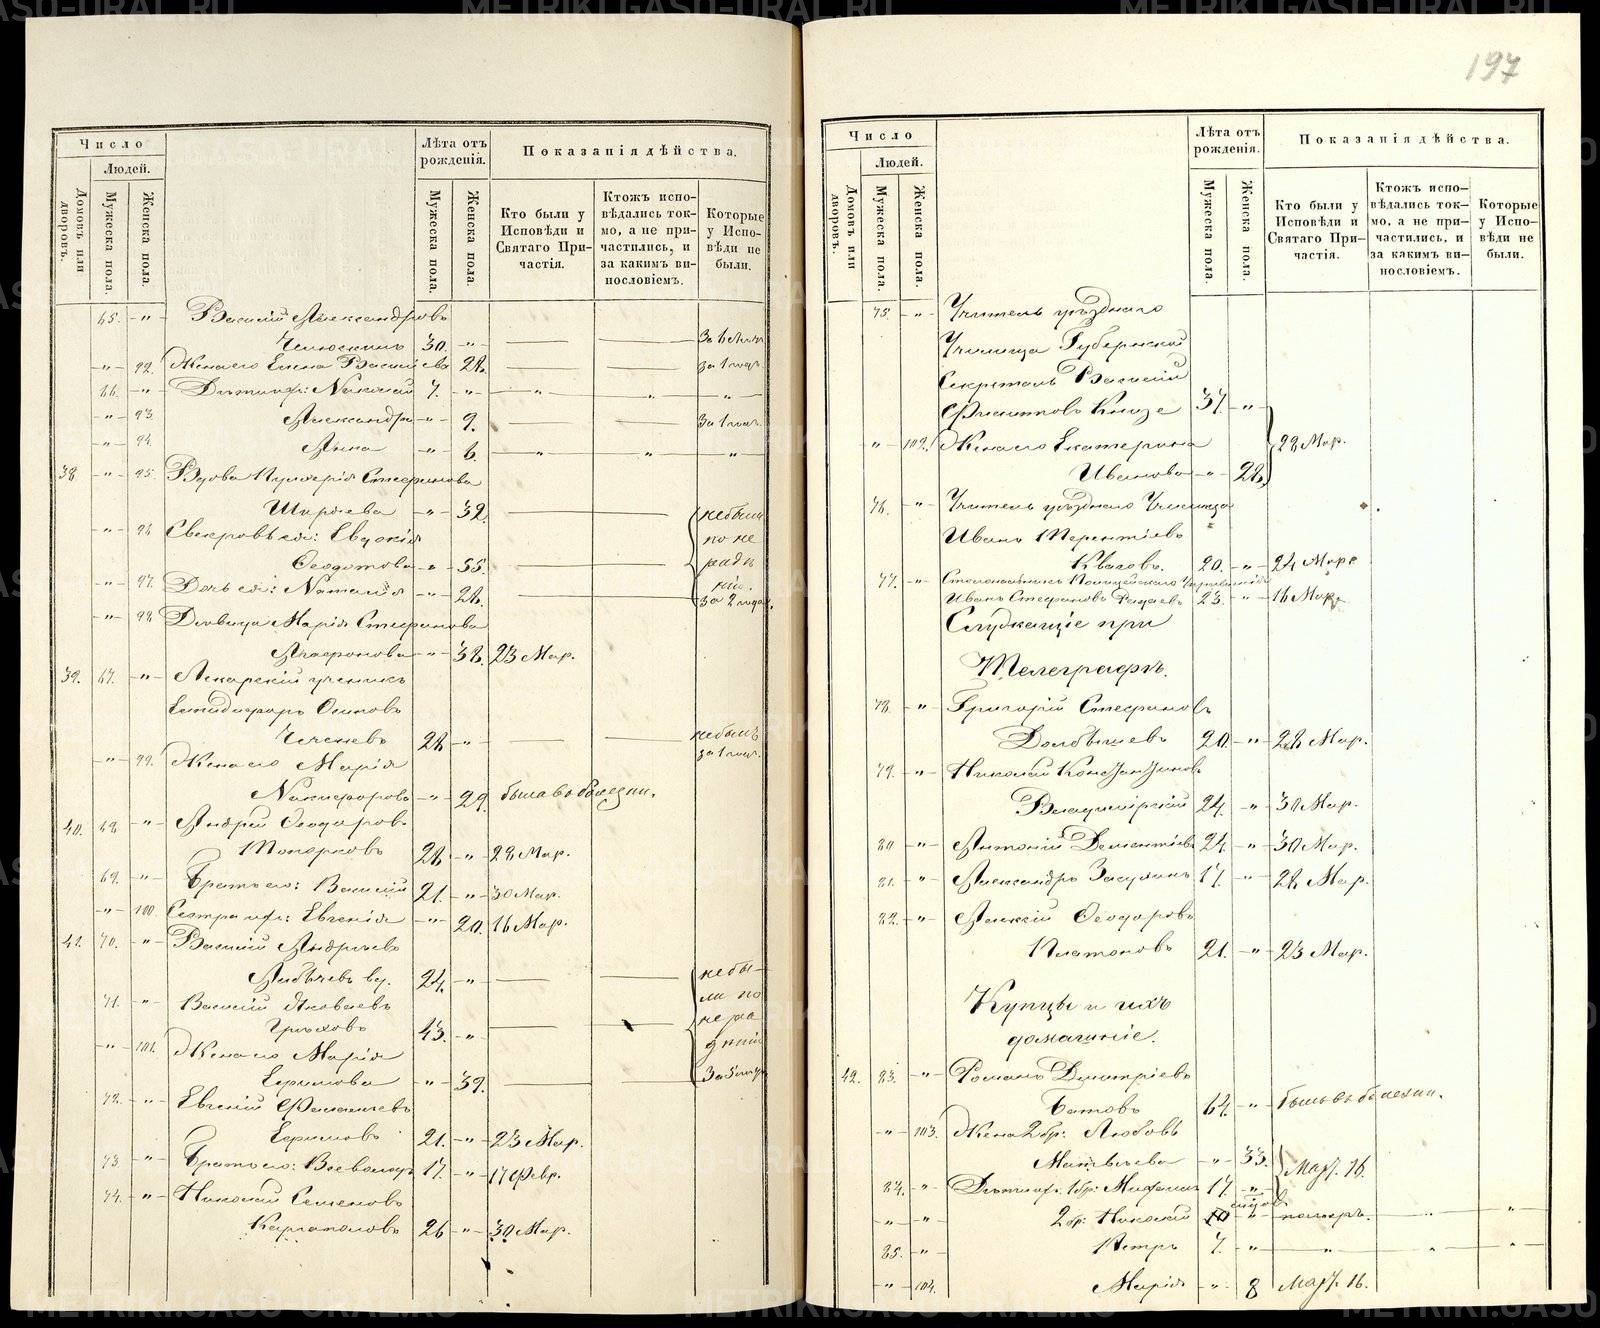 METRIKI.GASO-URAL.RU
197
Число
Людей.
Домовъ или дворовъ.
Мужеска пола.
Женска пола.
Лѣта отъ рожденія.
Мужеска пола.
Женска пола.
Показанія дѣйства.
Кто были у Исповѣди и Святаго Причастія.
Ктожъ испо-
вѣдались ток-
мо, а не при-
частились, и
за какимъ ви-
нословіемъ.
Которые
у Испо-
вѣди не
были.
65. -"- Василій Александровъ
30. -"-
-"- 92. Жена его Елена Васильева 28. за 1 годъ
66. -"- Дѣти их: Николай 7. -"- " " "
-"- 93. Александра -"- 9. за 1 годъ
-"- 94. Анна -"- 6. " " "
38 -"- 95. Вдова Пульхерія Стефанова
Ширяева -"- 39. небыли
-"- 96 Свекровь ея: Евдокія по не
Ѳеодотова -"- 55. радѣ
-"- 97. Дочь ея: Наталія -"- 28. нію.
за 2 года.
-"- 98 Дѣвица Марія Стефанова
Агафонова -"- 38. 23 Мар.
39. 67. -"- Лекарскій ученикъ
Елпидифоръ Осиповъ
28 -"- небылъ
за 1 годъ.
-"- 99. Жена его Марія
Никифорова -"- 29. была въ болезни.
40. 68 -"- Андрей Ѳеодоровъ
Топорковъ 28. -"- 28 Мар.
69. -"- Братъ его: Василій 21. -"- 30 Мар.
-"- 100. Сестра их: Евгенія -"- 20. 16 Мар.
41. 70. -"- Василій Андреевъ
24. -"- небы-
71. -"- Василій Яковлевъ ли по
Грѣховъ 43. -"- нера
-"- 101. Жена его Марія дѣнію
Ефимова -"- 39.
72. -"- Евгеній
Ефимовъ 21. -"- 23 Мар.
73. -"- Братъ его: Всеволодъ 17. -"- 17 Февр.
74. -"- Николай Семеновъ
Каргаполовъ 26 -"- 30 Мар.
Число
Людей.
Домовъ или дворовъ.
Мужеска пола.
Женска пола.
Лѣта отъ рожденія.
Мужеска пола.
Женска пола.
Показанія дѣйства.
Кто были у
Исповѣди и
Святаго При-
частія.
Ктожъ испо-
вѣдались ток-
мо, а не при-
частились, и
за какимъ ви-
нословіемъ.
Которые
у Испо-
вѣди не
были.
75. -"- Учитель уѣзднаго
Училища Губернскій
Секретарь Василій
Филиповъ Князе 37. -"-
-"- 102. Жена его Екатерина 28 Мар.
Иванова -"- 28.
76. -"- Учитель уѣзднаго Училища
Иванъ Терентіевъ
20. -"- 24 Мар.
77. -"- Столоначальникъ Полицейскаго Управленія
Иванъ Стефановъ 23. -"- 16 Мар.
Служащіе при
Телеграфѣ.
78. -"- Григорій Стефановъ
Долбышевъ 20. -"- 28 Мар.
79. -"- Николай Константиновъ
Владимірскій 24. -"- 30 Мар.
80 -"- Антоній Дементіевъ 24. -"- 30 Мар.
81. -"- Александръ Засухинъ 17. -"- 28 Мар.
82. -"- Алексій Ѳеодоровъ
Платоновъ 21. -"- 23 Мар.
Купцы и ихъ
домашніе.
42. 83. -"- Романъ Дмитріевъ
64. -"- былъ въ болезни.
-"- 103. Жена 2 бр: Любовь
Матвѣева -"- 33. Март. 16.
84. -"- Дѣти их: 1 бр: Михаилъ 17. -"-
-"- -"- 2 бр: Николай 10 -"- померъ. " "
85. -"- Петръ 7. -"- " " "
-"- 104. Марія -"- 8 Март. 16.